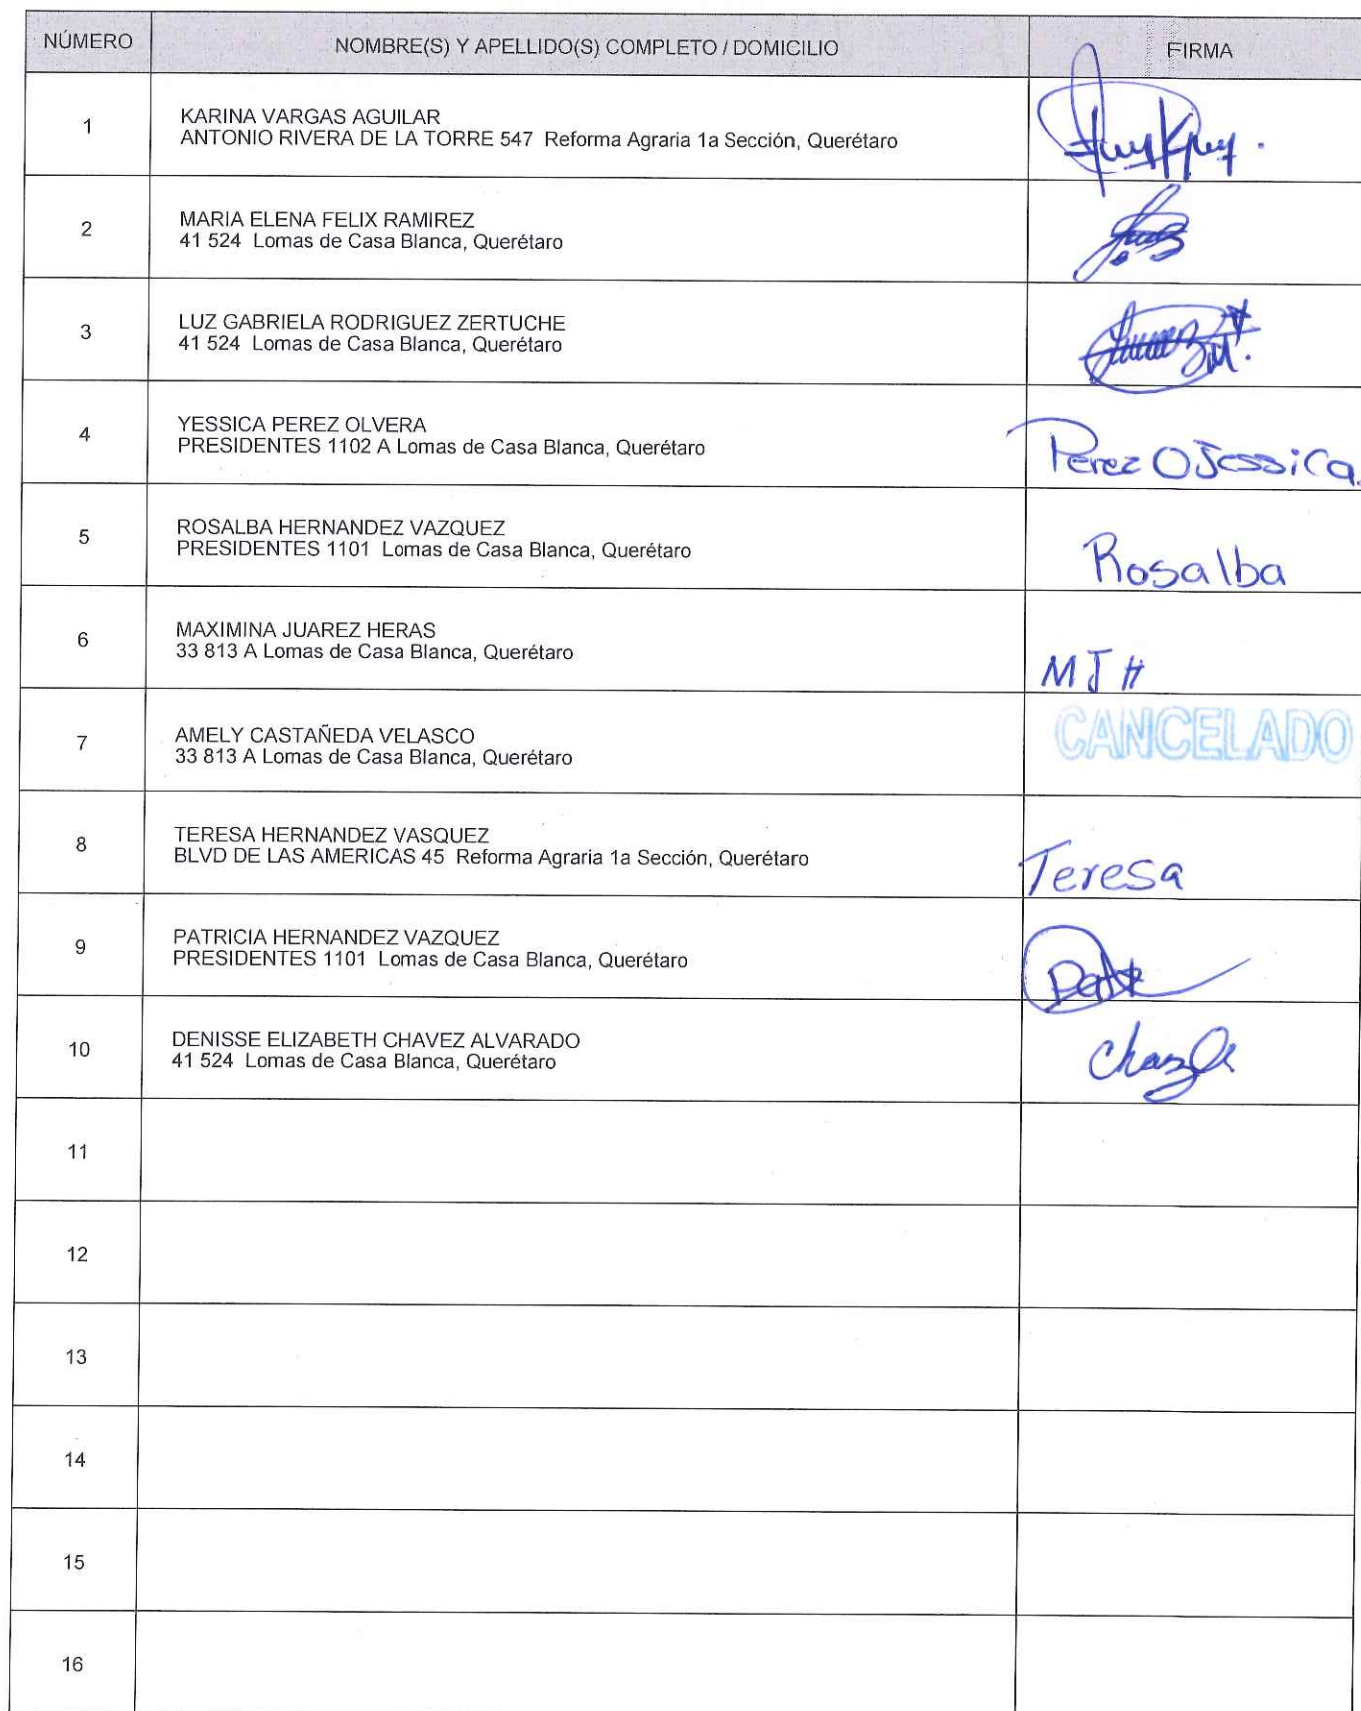 NÚMERO NOMBRE(S) Y APELLIDO(S) COMPLETO / DOMICILIO FIRMA
1 KARINA VARGAS AGUILAR
ANTONIO RIVERA DE LA TORRE 547 Reforma Agraria 1a Sección, Querétaro
2 MARIA ELENA FELIX RAMIREZ
41 524 Lomas de Casa Blanca, Querétaro
3 LUZ GABRIELA RODRIGUEZ ZERTUCHE
41 524 Lomas de Casa Blanca, Querétaro
4 YESSICA PEREZ OLVERA
PRESIDENTES 1102 A Lomas de Casa Blanca, Querétaro
Perez O Jessica.
5 ROSALBA HERNANDEZ VAZQUEZ
PRESIDENTES 1101 Lomas de Casa Blanca, Querétaro
Rosalba
6 MAXIMINA JUAREZ HERAS
33 813 A Lomas de Casa Blanca, Querétaro
MJH
7 AMELY CASTAÑEDA VELASCO
33 813 A Lomas de Casa Blanca, Querétaro
CANCELADO
8 TERESA HERNANDEZ VASQUEZ
BLVD DE LAS AMERICAS 45 Reforma Agraria 1a Sección, Querétaro
Teresa
9 PATRICIA HERNANDEZ VAZQUEZ
PRESIDENTES 1101 Lomas de Casa Blanca, Querétaro
10 DENISSE ELIZABETH CHAVEZ ALVARADO
41 524 Lomas de Casa Blanca, Querétaro
11
12
13
14
15
16